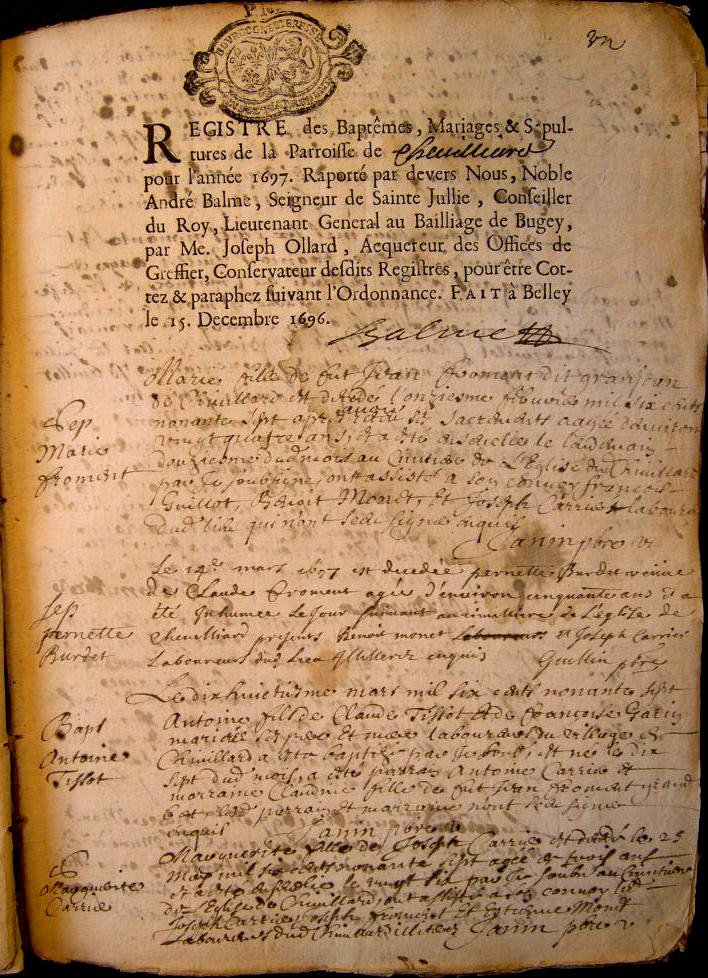 REGISTRE des Baptêmes, Mariages & Sepul-
tures de la Parroisse de Cheuilliard
pour l'année 1697. Raporté par devers Nous, Noble
André Balme, Seigneur de Sainte Jullie, Conseiller
du Roy, Lieutenant General au Bailliage de Bugey,
par Me. Joseph Ollard, Acquereur des Offices de
Greffier, Conservateur desdits Registres, pour être Cot-
tez & paraphez suivant l'Ordonnance. FAIT à Belley
le 15. Decembre 1696.
Balme
Sep
Marie
froment
Marie fille de fut Jean froment dit granjean
de Chuillard est decedé lonziesme mil six cents
nonante sept apres sacrements aagee denviron
vingt quatre ans, et a esté le landemain
douziesme dud mois au Cimitiere de L'Eglise du Chuillard
par le soubsigne, ont assisté a son convoy françois
Guillot, Benoit Monet, et Joseph Carrier laboureurs
dud lieu qui n'ont sceu signe enquis
Janin pbre
Sep
pernette
Burdet
Le 14e mars 1697 est decedée pernette Burdet veuve
de Claude froment agée d'environ cinquante ans et a
été Inhumée le Jour suivant au cimitiere de L'église de
cheuilliard presents Benoit monet et Joseph Carrier
Laboureurs dud Lieu Illiterez enquis Guillin pbre
Bapt
Antoine
Tissot
Le dixhuictiesme mars mil six cents nonante sept
Antoine fils de Claude Tissot et de françoise
mariés laboureurs du village de
Chuillard a esté baptisé par le soubs. et né le dix
sept dud mois, a esté parrain Antoine Carrier et
marraine Claudine fille de fut Jean froment
parrain et marraine nont sceu signe
enquis Janin pbre
Marguerite
Carrier
Marguerite fille de Joseph Carrier est decedé le 25
Mars mil six cents nonante sept agée de
et a esté le vingt six par le soubs. au Cimitiere
de l'Eglise du Chuillard, ont assisté a son convoy led
Joseph Carrier, Joseph froment et Estienne Monet
Laboureurs dud Chuillard illiterez Janin pbre